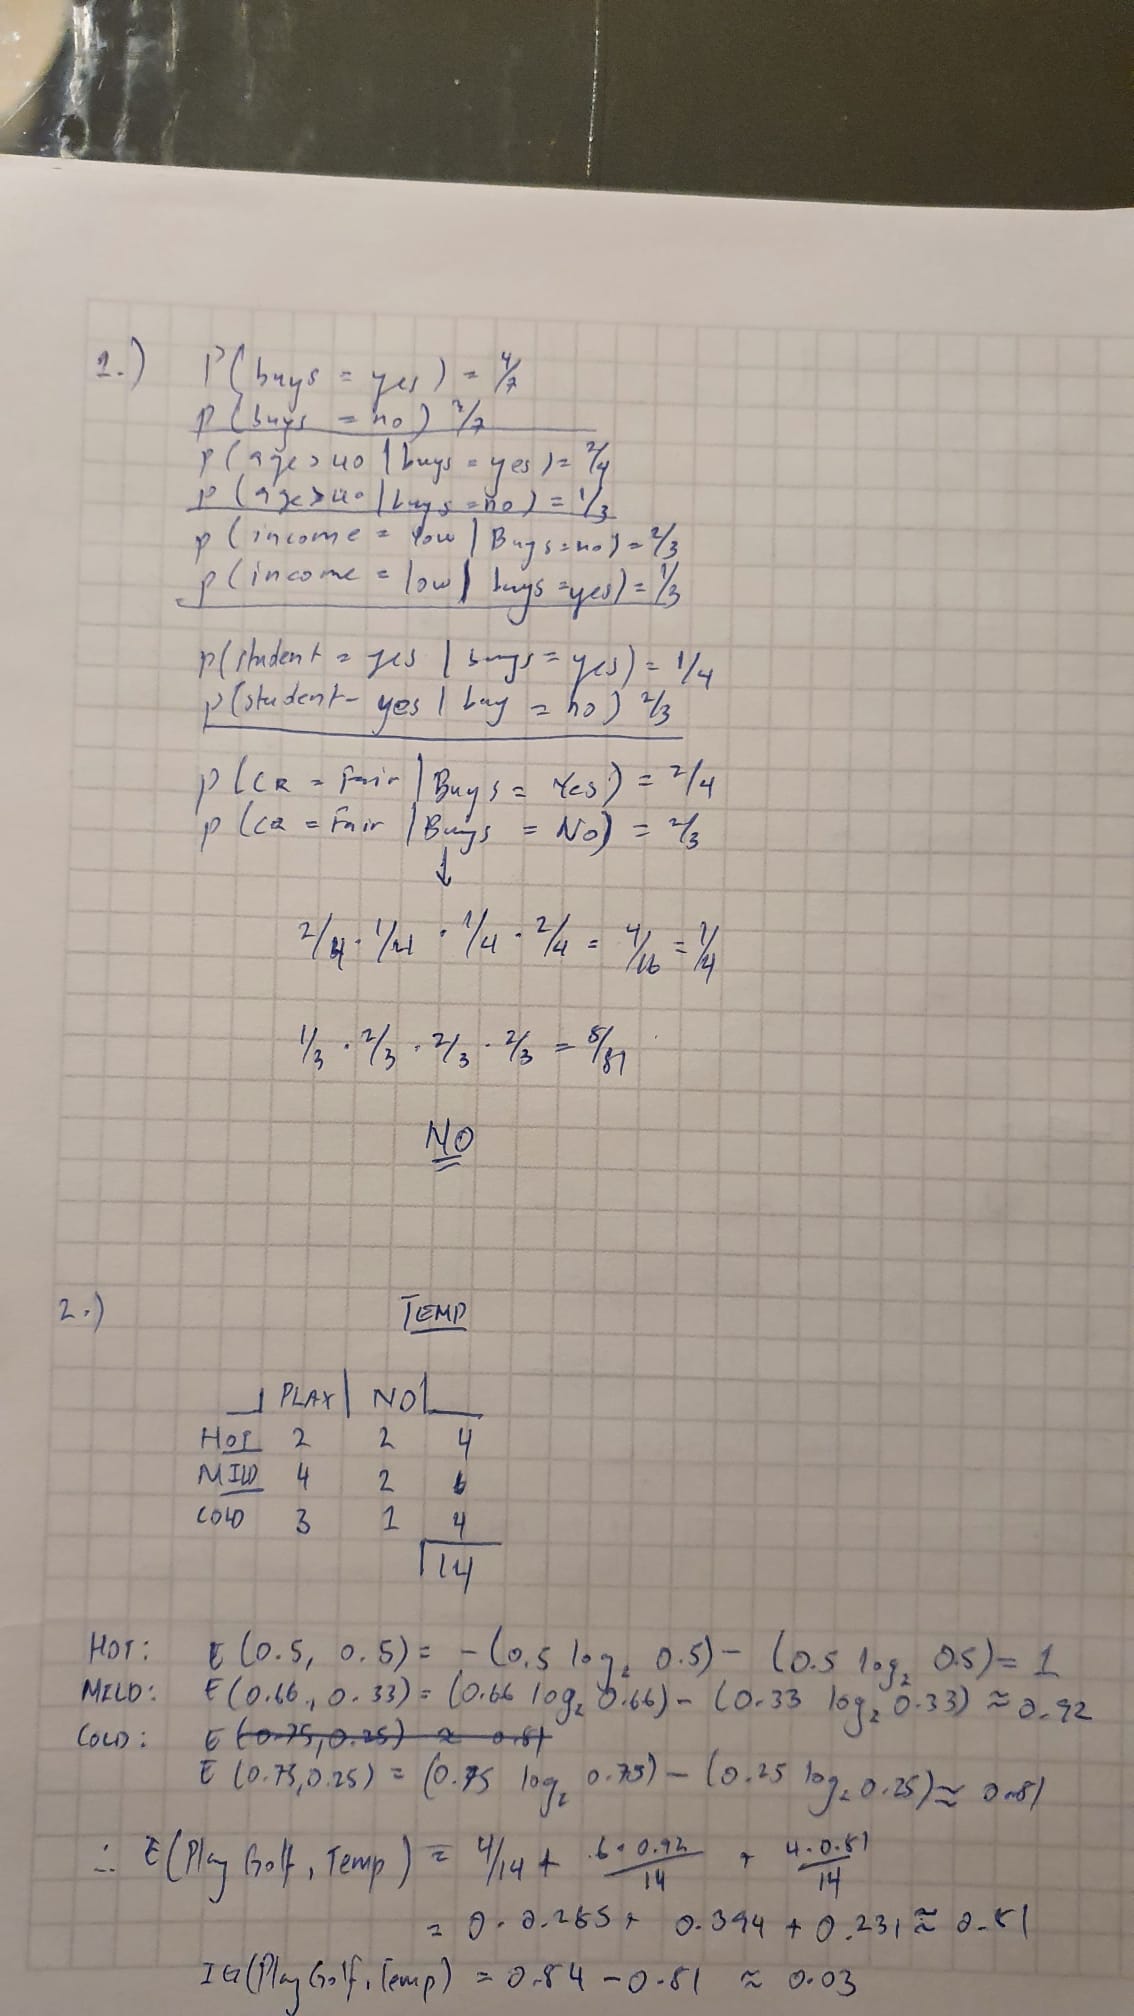 1.) P(buys = yes) = 4/7
p(buys = no) 3/7
p(age>40 | buys = yes) = 2/4
p(age>40 | buys = no) = 1/3
p(income = low | Buys = no) = 2/3
p(income = low | buys = yes) = 1/3
p(student = yes | buys = yes) = 1/4
p(student - yes | buy = no) 2/3
p(CR = Fair | Buys = Yes) = 2/4
p(CR = Fair | Buys = No) = 2/3
↓
2/4 · 1/4 · 1/4 · 2/4 = 4/16 = 1/4
1/3 · 2/3 · 2/3 · 2/3 = 8/81
NO
2.) TEMP
PLAY | NO |
HOT 2 2 4
MILD 4 2 6
COLD 3 1 4
14
HOT: E(0.5, 0.5) = -(0.5 log₂ 0.5) - (0.5 log₂ 0.5) = 1
MILD: E(0.66, 0.33) = (0.66 log₂ 0.66) - (0.33 log₂ 0.33) ≈ 0.92
COLD: E (0.75, 0.25) ≈ 0.81
E (0.75, 0.25) = (0.75 log₂ 0.75) - (0.25 log₂ 0.25) ≈ 0.81
∴ E(Play Golf, Temp) = 4/14 + 6·0.92/14 + 4·0.81/14
= 0.285 + 0.394 + 0.231 ≈ 0.81
IG(Play Golf, Temp) = 0.84 - 0.81 ≈ 0.03